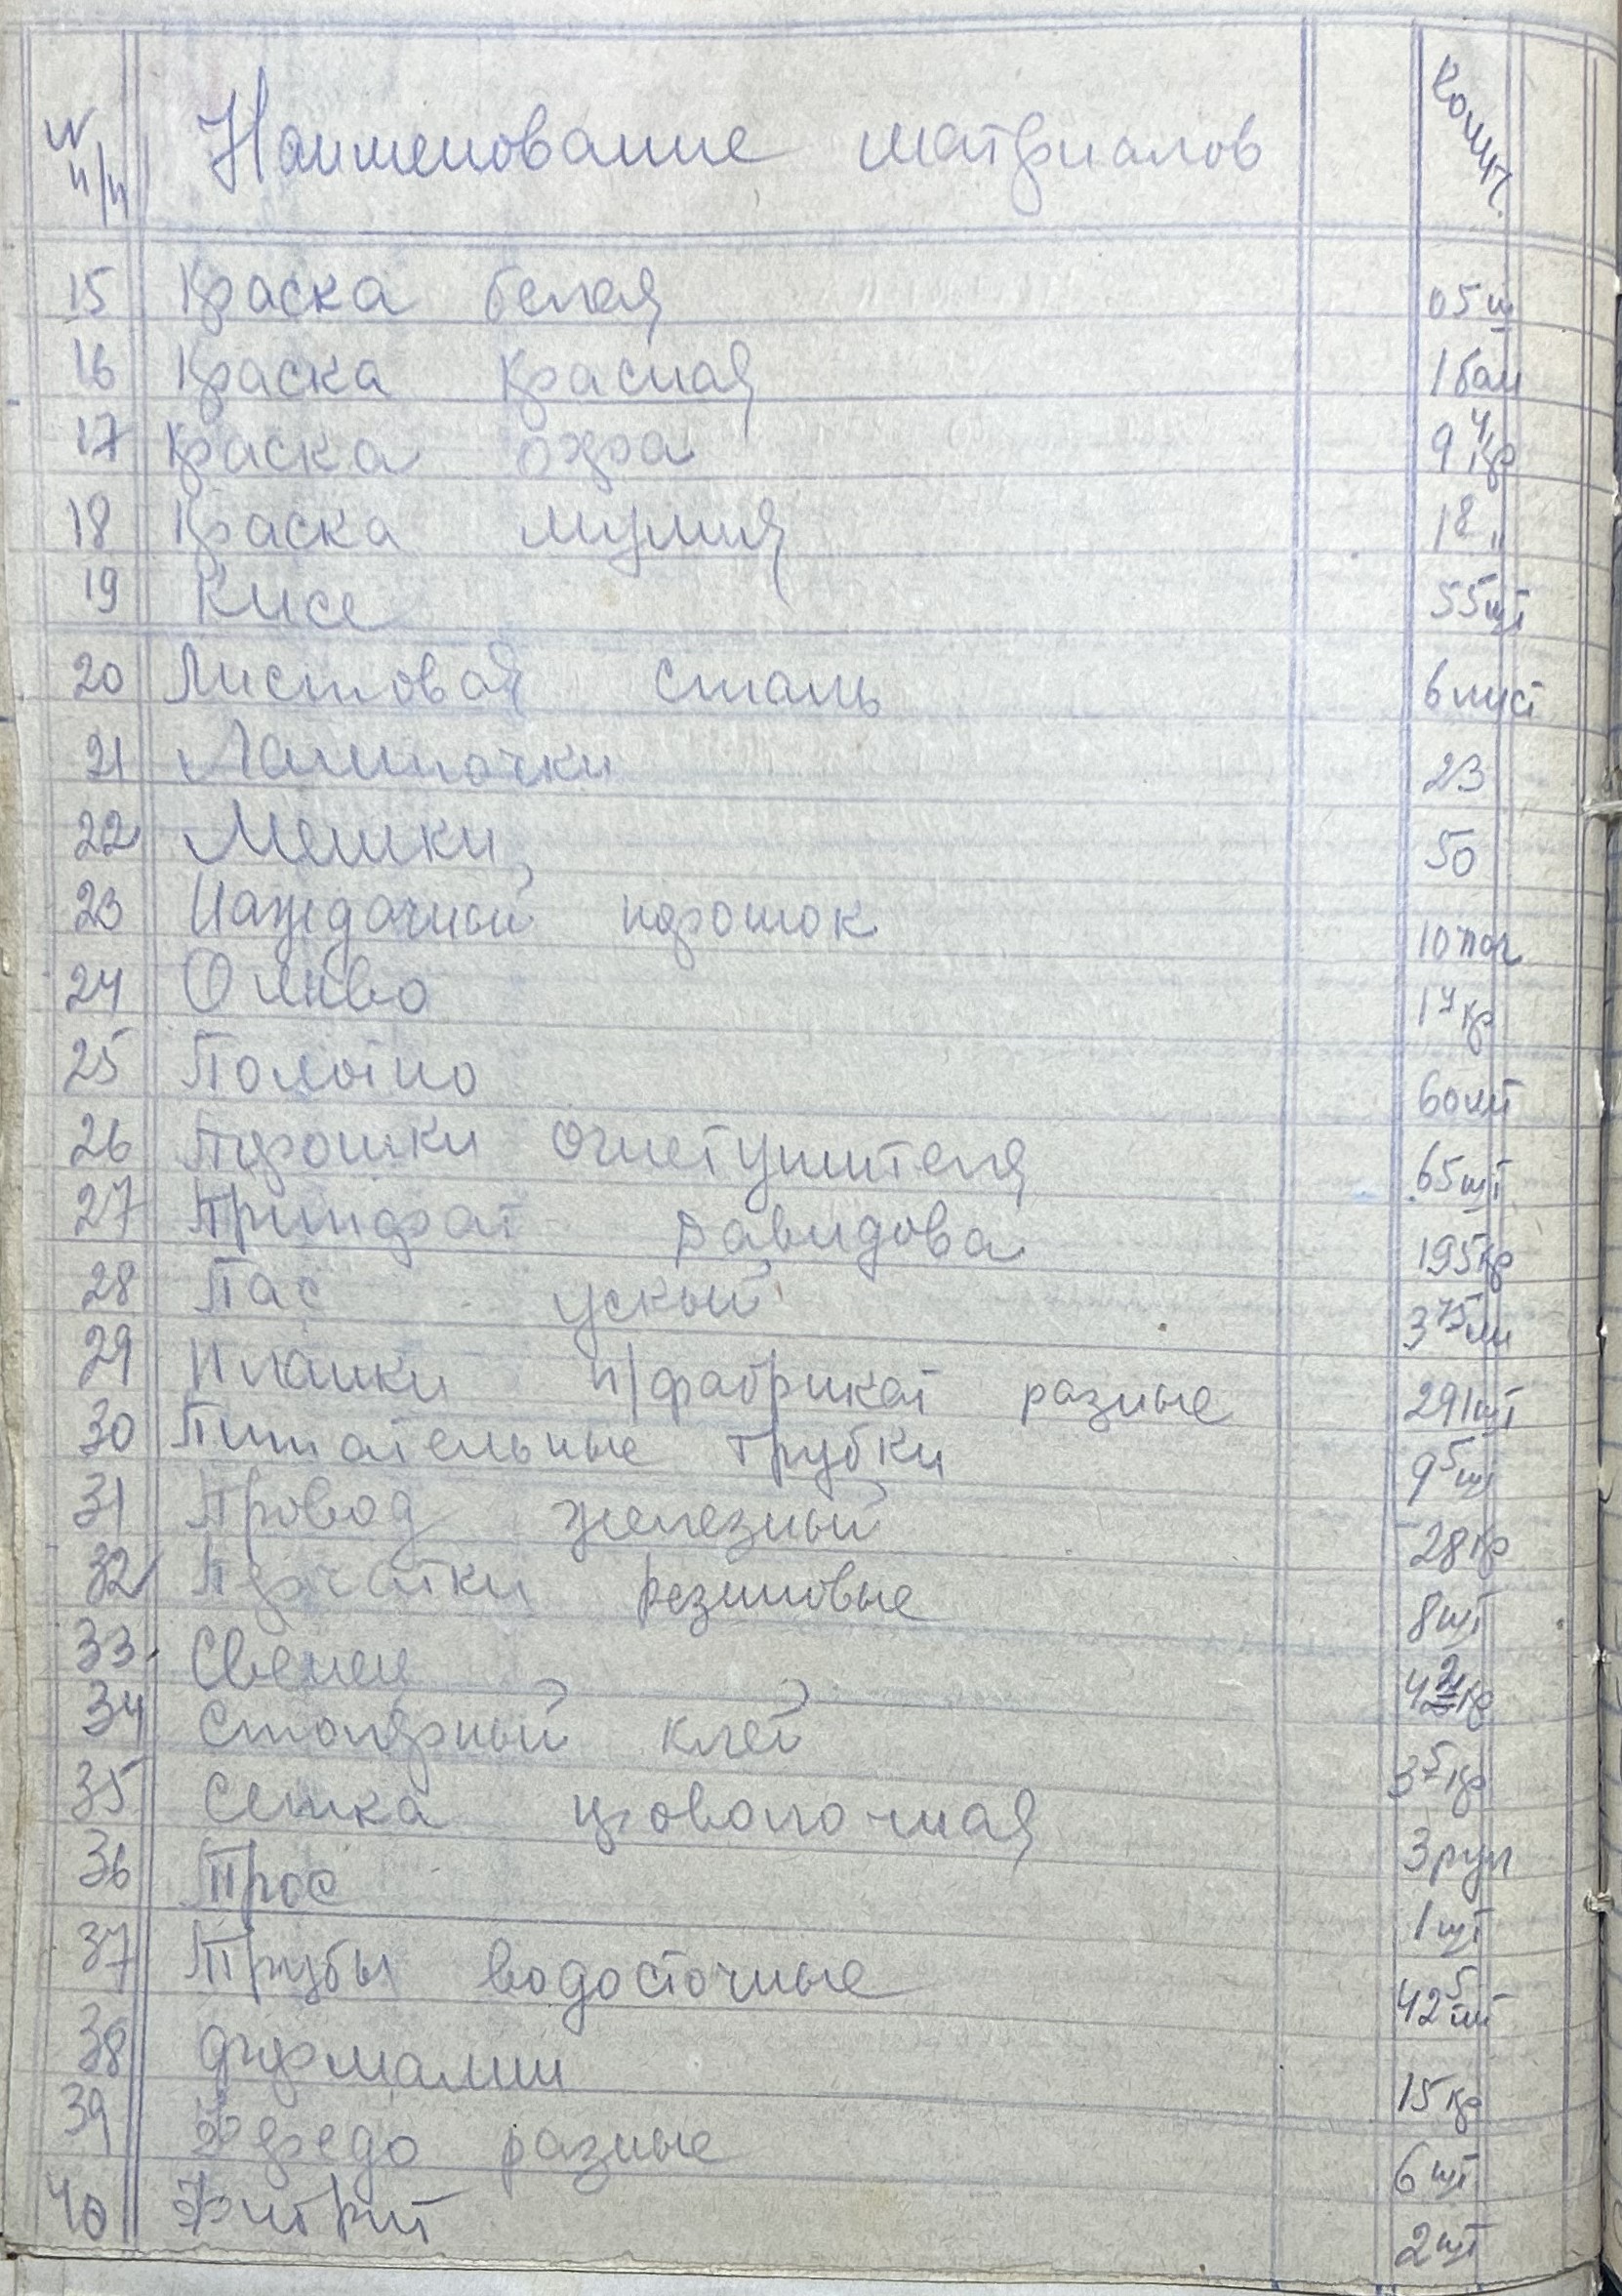 N п/п Наименование материалов Колич.
15 Краска белая 05 ш
16 Краска красная 1 бан
17 Краска охра 9 4 кр
18 Краска мумия 18 "
19 Кисе 55 шт
20 Листовая сталь 6 лист
21 Лампочки 23
22 Мешки 50
23 Наждачный порошок 10 пог
24 Олово 1 4 кр
25 Полотно 60 мт
26 Порошки огнетушителя 65 шт
27 Давидова 195 кр
28 Пас ускый 3 75 мт
29 Планки п/фабрикат разные 291 шт
30 Питательные трубки 9 5 шт
31 Провод железный 28 кр
32 Перчатки резиновые 8 шт
33 Свенец 42 кр
34 Столярный клей 3 5 кр
35 Сетка проволочная 3 рул
36 Трос 1 шт
37 Трубы водосточные 42 5 мт
38 Формалин 15 кр
39 разные 6 шт
40 2 шт